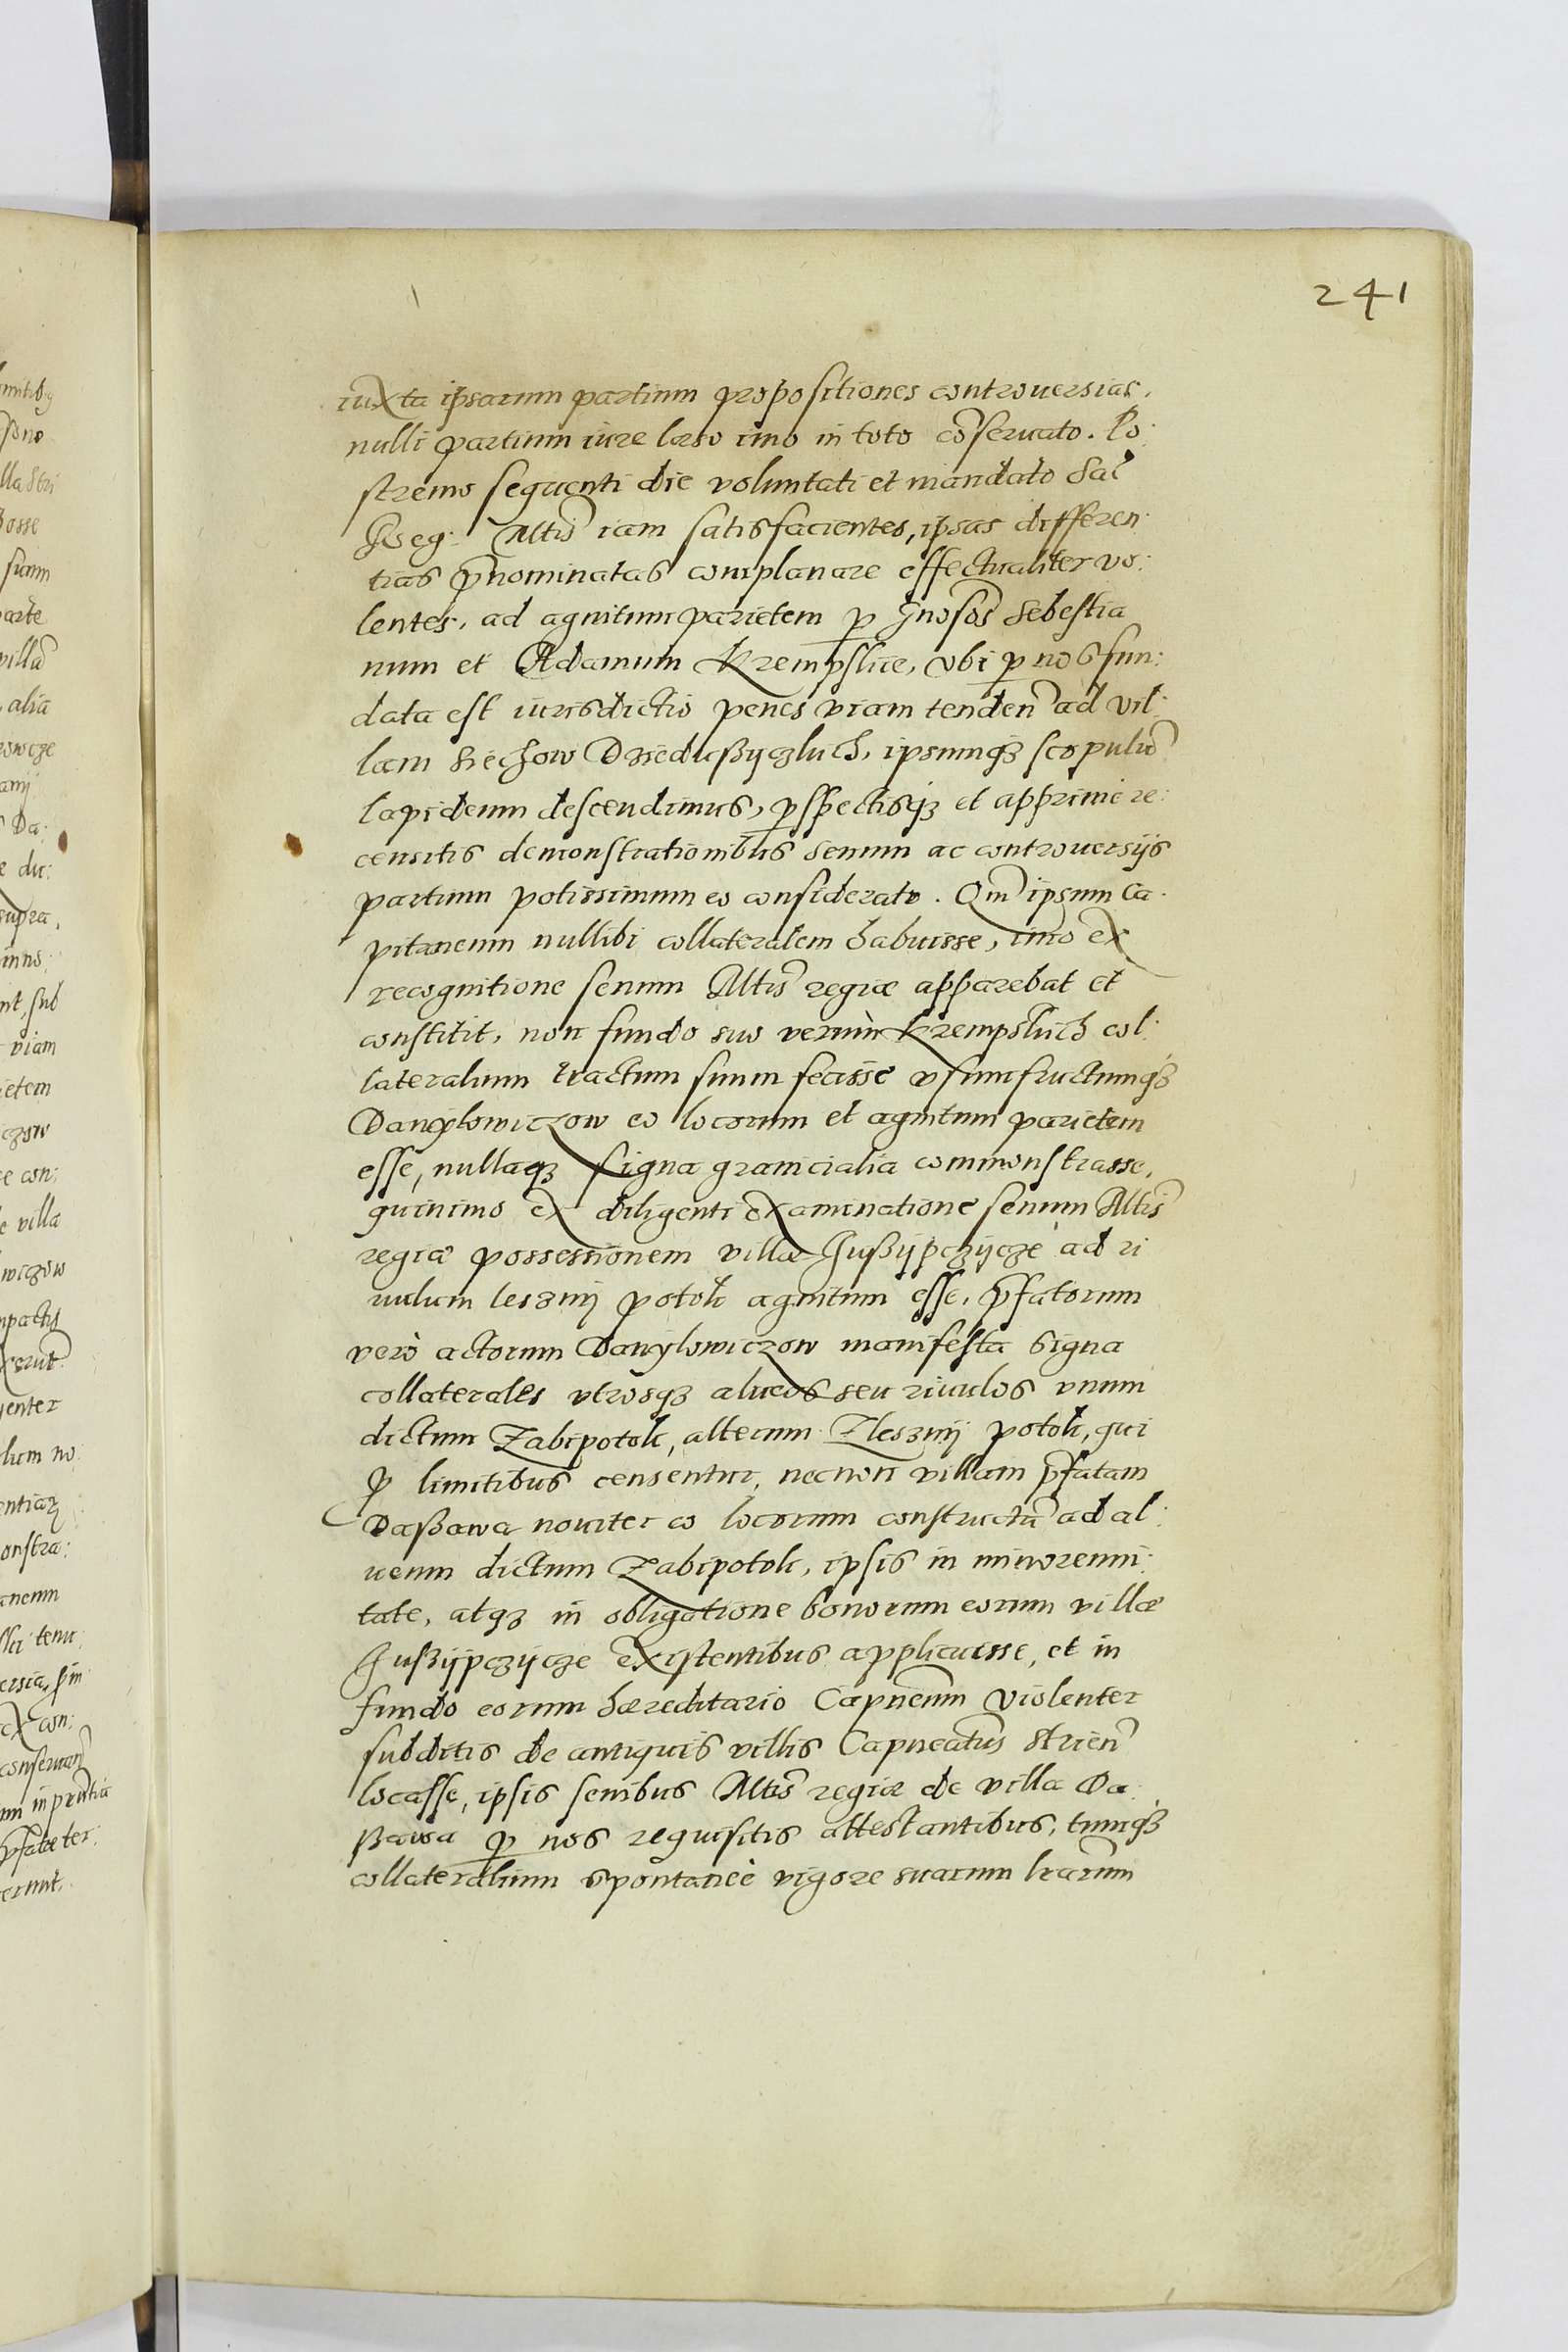 241
iuxta ipsarum partium propositiones controuersias,
nulli partium iure læso imo in toto cõseruato. Po:
stremo sequenti die voluntati et mandato Sac̃
Reg: Mtis̃ iam satisfacientes, ipsas differen:
tias p̃nominatas complanare effectualiter vo:
lentes, ad agnitum parietem ꝑ Gnosõs Sebestia
num et Adamum Krempskie, vbi ꝑ nos fun:
data est iurisdictio penes viam tenden̄ ad vil:
lam Dzieduβyczkich, ipsumqȝ scopulũ
lapideum descendimus, ꝑspectisqȝ et apprime re:
censitis demonstrationibus senum ac controuersijs
partium potissimum eo considerato. Qm̃ ipsum Ca:
pitaneum nullibi collateralem habuisse, imo ex
recognitione senum Mtis̃ regiæ apparebat et
constitit, non fundo suo verùm Krempskich col:
lateralium tractum suum fecisse vsumfructumqȝ
Danyłowiczow eo locorum et agnitum parietem
esse, nullaqȝ signa granicialia commonstrasse,
quinimo ex diligenti examinatione senum Mtis̃
regiæ possessionem villæ Juβÿpczycze ad ri
uulum leszny potok agnitum esse, p̃fatorum
verò actorum Danyłowiczow manifesta signa
collaterales vtrosqȝ alueos seu riuulos vnum
dictum Zabipotok, alterum Zleszny potok, qui
ꝓ limitibus censentur, necnon villam p̃fatam
Daβawa nouiter eo locorum constructã ad al:
ueum dictum Zabipotok, ipsis in minorenni:
tate, atqȝ in obligatione bonorum eorum villæ
Juβÿpczycze existentibus applicuisse, et in
fundo eorum hæreditario Capneum̃ violenter
subditis de antiquis villis Capneatus̃ Strien̄
locasse, ipsis senibus Mtis̃ regiæ de villa Da:
βawa ꝑ nos requisitis attestantibus, tumqȝ
collateralium spontaneè vigore suarum lrarum̃